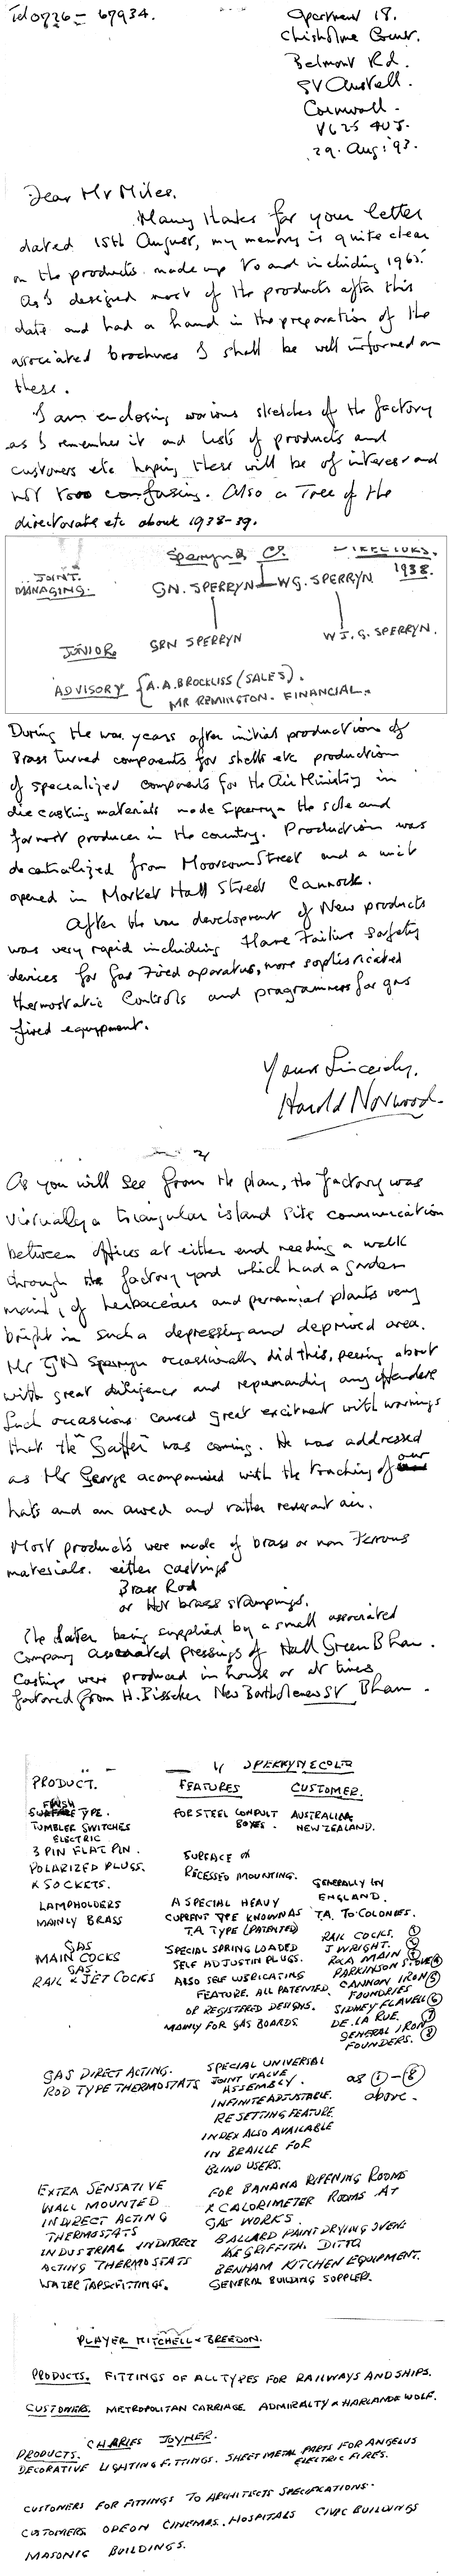 Tel 0726 = 67934.
Apartment 18.
Chisholme Court.
Belmont Rd.
St Austell.
Cornwall.
29. Aug: '93.
Dear Mr Miles.
Many thanks for your letter
dated 15th August, my memory is quite clear
on the products made up to and including 1965.
As I designed most of the products after this
date and had a hand in the preparation of the
associated brochures I shall be well informed on
these.
I am enclosing various sketches of the factory
as I remember it and lists of products and
customers etc hoping these will be of interest and
not too confusing. Also a Tree of the
directorate etc about 1938-39.
Sperryn & Co. DIRECTORS.
1938.
JOINT
MANAGING. GN. SPERRYN WG. SPERRYN
JUNIOR GRN SPERRYN W J. G. SPERRYN.
ADVISORY { A.A. BROCKLISS (SALES).
MR REMINGTON. FINANCIAL.
During the war years after initial production of
Brass turned components for shells etc production
of specialized components for the Air Ministry in
die casting materials made Sperryn the sole and
formost producer in the country. Production was
decentralized from Moorsom Street and a unit
opened in Market Hall Street Cannock.
After the war development of New products
was very rapid including Flame Failure Safety
devices for Gas Fired aparatus, more sophisticated
thermostatic Controls and programmers for gas
fired equypment.
Yours Sincerely.
Harold Norwood.
2/
As you will see from the plan, the factory was
virtually a triangular island site communication
between offices at either end needing a walk
through the factory yard which had a garden
mainly of herbaceous and perennial plants very
bright in such a depressing and deprived area.
Mr GN Sperryn occasionally did this, peering about
with great diligence and repremanding any offenders
Such occasions caused great excitment with warnings
that the "Gaffer" was coming. He was addressed
as Mr George acompanied with the touching of our
hats and an awed and rather reverant air.
Most products were made of brass or non Ferrous
materials. either castings
Brass Rod
or Hot brass stampings.
The later being supplied by a small associated
Company assocated pressings of Hall Green Bham.
Castings were produced in house or at times
factored from H. Bisseker New Bartholemew St Bham.
4/ SPERRYN & CO LTD
PRODUCT. FEATURES CUSTOMER.
FLUSH
TYPE. FOR STEEL CONDUIT AUSTRALIA &
TUMBLER SWITCHES BOXES. NEW ZEALAND.
ELECTRIC
3 PIN FLAT PIN.
POLARIZED PLUGS. SURFACE OR
& SOCKETS. RECESSED MOUNTING. GENERALLY IN
ENGLAND.
LAMPHOLDERS A SPECIAL HEAVY
MAINLY BRASS CURRENT TYPE KNOWN AS T.A. TO COLONIES.
T.A TYPE (PATENTED)
GAS SPECIAL SPRING LOADED RAIL COCKS. ①
MAIN COCKS SELF ADJUSTIN PLUGS. J WRIGHT. ②
GAS. R & A MAIN ③
RAIL & JET COCKS ALSO SELF LUBRICATING PARKINSON STOVE ④
FEATURE. ALL PATENTED CANNON IRON ⑤
FOUNDRIES
OR REGISTERED DESIGNS. SIDNEY FLAVELL ⑥
MAINLY FOR GAS BOARDS. DE. LA RUE. ⑦
GENERAL IRON
FOUNDERS. ⑧
GAS DIRECT ACTING. SPECIAL UNIVERSAL
ROD TYPE THERMOSTATS JOINT VALVE as ① - ⑧
ASSEMBLY. above.
INFINITE ADJUSTABLE.
RESETTING FEATURE.
INDEX ALSO AVAILABLE
IN BRAILLE FOR
BLIND USERS.
EXTRA SENSATIVE FOR BANANA RIPENING ROOMS
WALL MOUNTED & CALORIMETER ROOMS AT
INDIRECT ACTING GAS WORKS.
THERMOSTATS
INDUSTRIAL INDIRECT BALLARD PAINT DRYING OVENS
ACTING THERMOSTATS GRIFFITH. DITTO
BENHAM KITCHEN EQUIPMENT.
WATER TAPS & FITTINGS. GENERAL BUILDING SUPPLER.
PLAYER MITCHELL & BREEDON.
PRODUCTS. FITTINGS OF ALL TYPES FOR RAILWAYS AND SHIPS.
CUSTOMERS. METROPOLITAN CARRIAGE. ADMIRALTY & HARLAND & WOLF.
CHARLES JOYNER.
PRODUCTS.
DECORATIVE LIGHTING FITTINGS. SHEET METAL PARTS FOR ANGELUS
ELECTRIC FIRES.
CUSTOMERS FOR FITTINGS TO ARCHITECTS SPECIFICATIONS.
CUSTOMERS ODEON CINEMAS. HOSPITALS CIVIC BUILDINGS
MASONIC BUILDINGS.